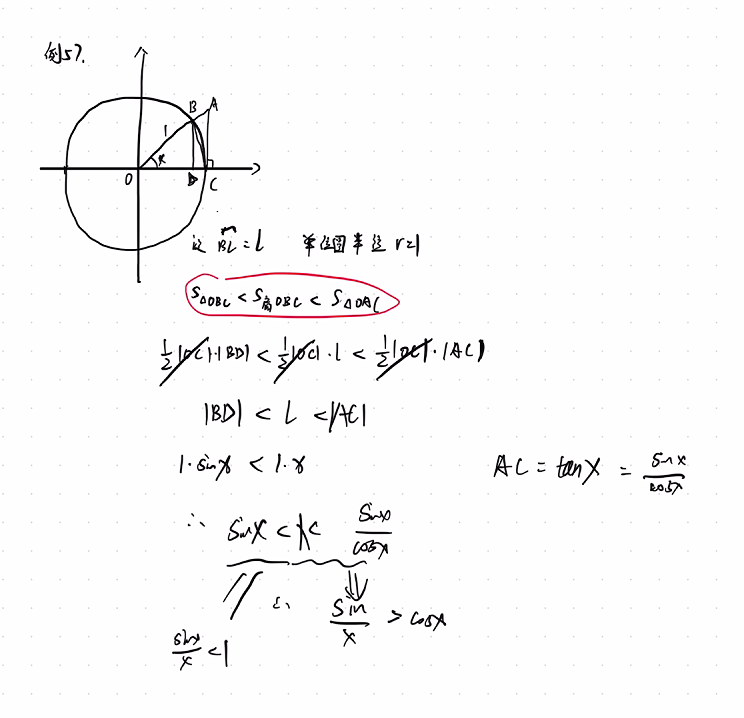 例57.
B A
1
x
O D C
设 BC = l 单位圆半径 r=1
S△OBC < S扇OBC < S△OAC
1/2 |OC|·|BD| < 1/2 |OC|·l < 1/2 |OC|·|AC|
|BD| < L < |AC|
1·sinx < 1·x
AC = tanX = sinx/cosx
∴ sinX < x < sinx/cosx
∴ sin/x > cosx
sinx/x < 1